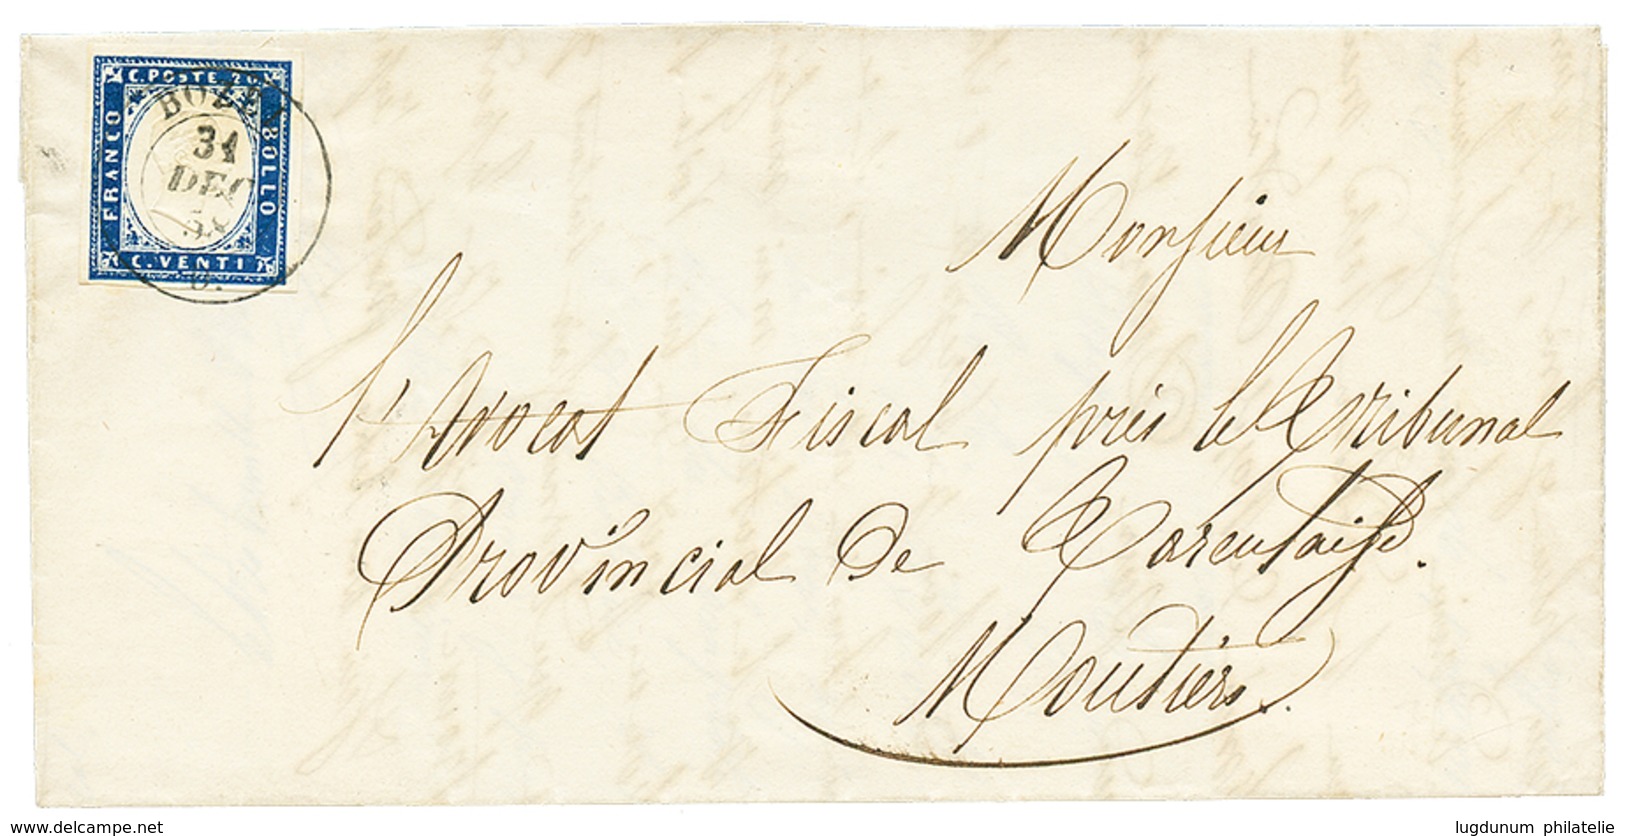 C. POSTE 20
FRANCO
BOLLO
C. VENTI
BOZEL
31
DEC
58
Monsieur
l'Avocat Fiscal près le Tribunal
Provincial de Tarentaise.
Moutiers.
delcampe.net
lugdunum philatelie